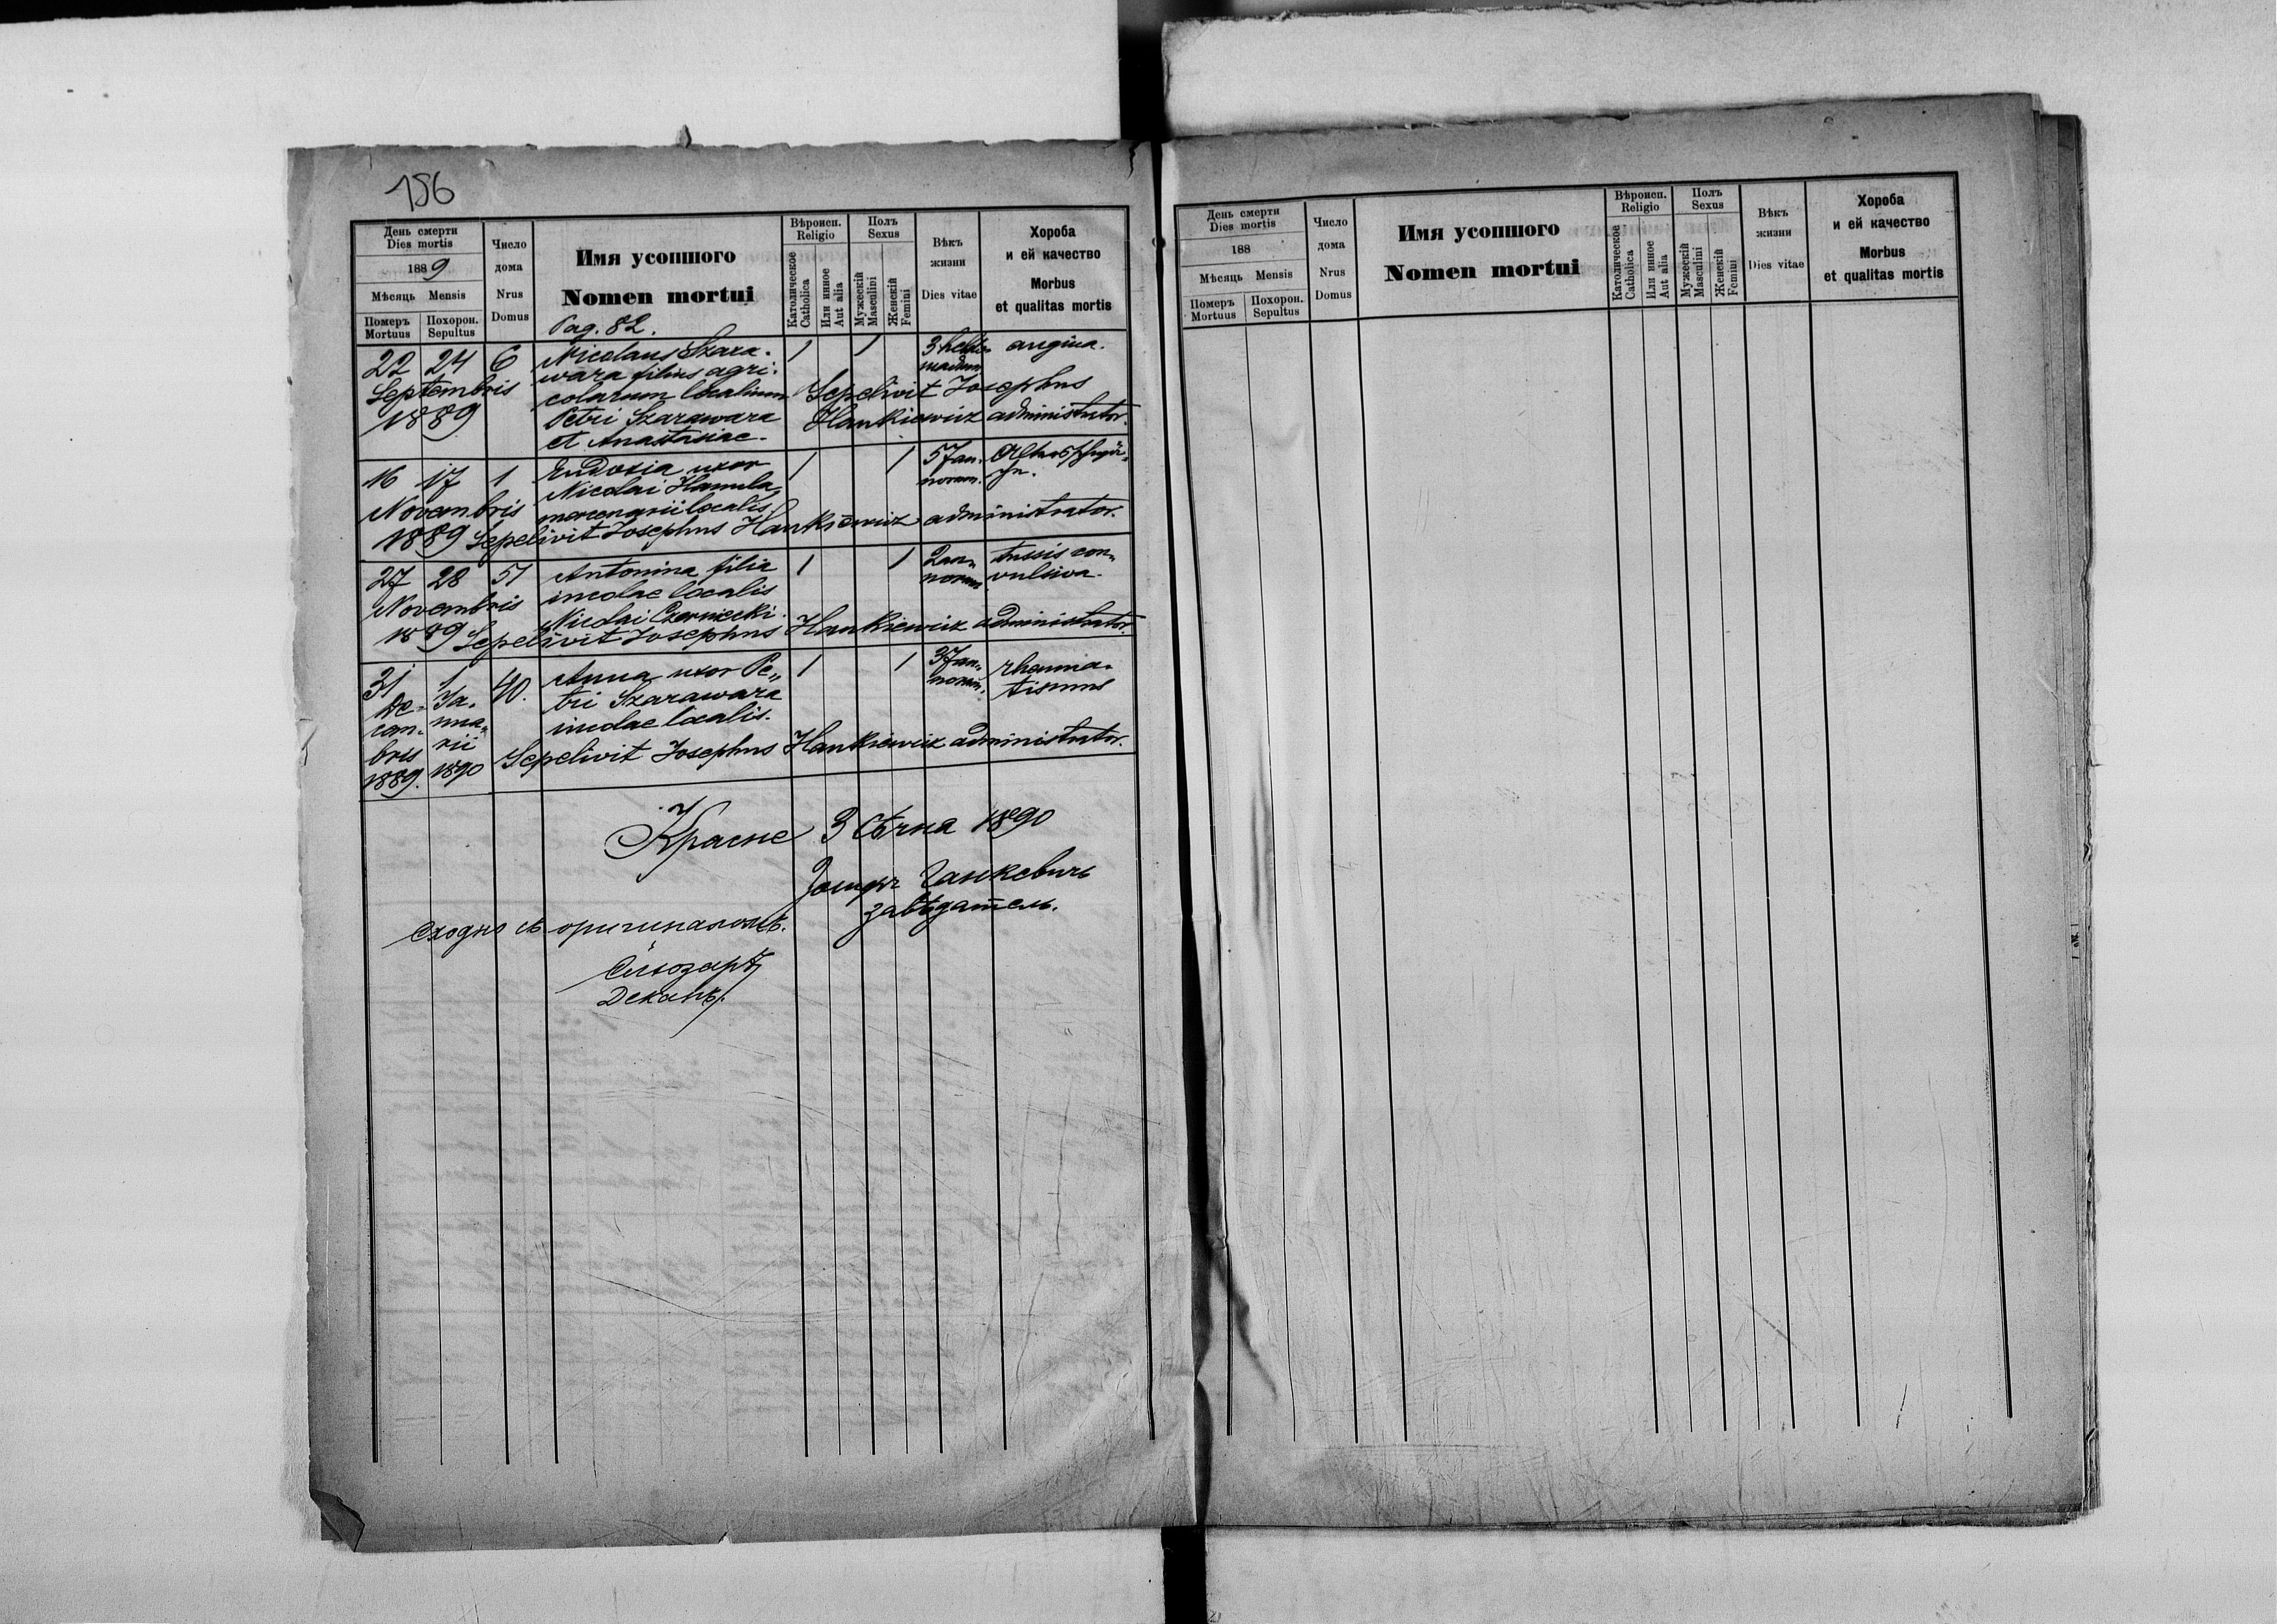 156
День смерти
Dies mortis
1889
Мѣсяць Mensis
Померъ
Mortuus
Похорон.
Sepultus
Число
дома
Nrus
Domus
Имя усопшого
Nomen mortui
Pag. 82.
Вѣроисп.
Religio
Католическое
Catholica
Или иное
Aut alia
Полъ
Sexus
Мужескій
Masculini
Женскій
Femini
Вѣкъ
жизни
Dies vitae
Хороба
и ей качество
Morbus
et qualitas mortis
22 24 6 Nicolaus Szara- 1 1 3 hebdo- angina.
wara filius agri- madum
Septembris colarum localium Sepelivit Josephus
1889 Petri Szarawara Hankiewicz administrator.
et Anastasiae.
16 17 1 Eudoxia uxor 1 1 57 an-
Nicolai Hamula, norum.
Novembris mercenarii localis.
1889 Sepelivit Josephus Hankiewicz administrator.
27 28 51 Antonina filia 1 1 2 an- tussis con-
incolae localis norum vulsiva.
Novembris Nicolai Czerniecki.
1889 Sepelivit Josephus Hankiewicz administrator.
31 1 40. Anna uxor Pe- 1 1 37 an- rheuma-
De- Ja- tri Szarawara norum. tismus
cem- nua- incolae localis.
bris rii Sepelivit Josephus Hankiewicz administrator.
1889. 1890
Красне 3 Сѣчня 1890
Іосифъ Ганкевичъ
завѣдатель.
Сходно съ оригиналомъ.
Деканъ.
День смерти
Dies mortis
188
Мѣсяць Mensis
Померъ
Mortuus
Похорон.
Sepultus
Число
дома
Nrus
Domus
Имя усопшого
Nomen mortui
Вѣроисп.
Religio
Католическое
Catholica
Или иное
Aut alia
Полъ
Sexus
Мужескій
Masculini
Женскій
Femini
Вѣкъ
жизни
Dies vitae
Хороба
и ей качество
Morbus
et qualitas mortis